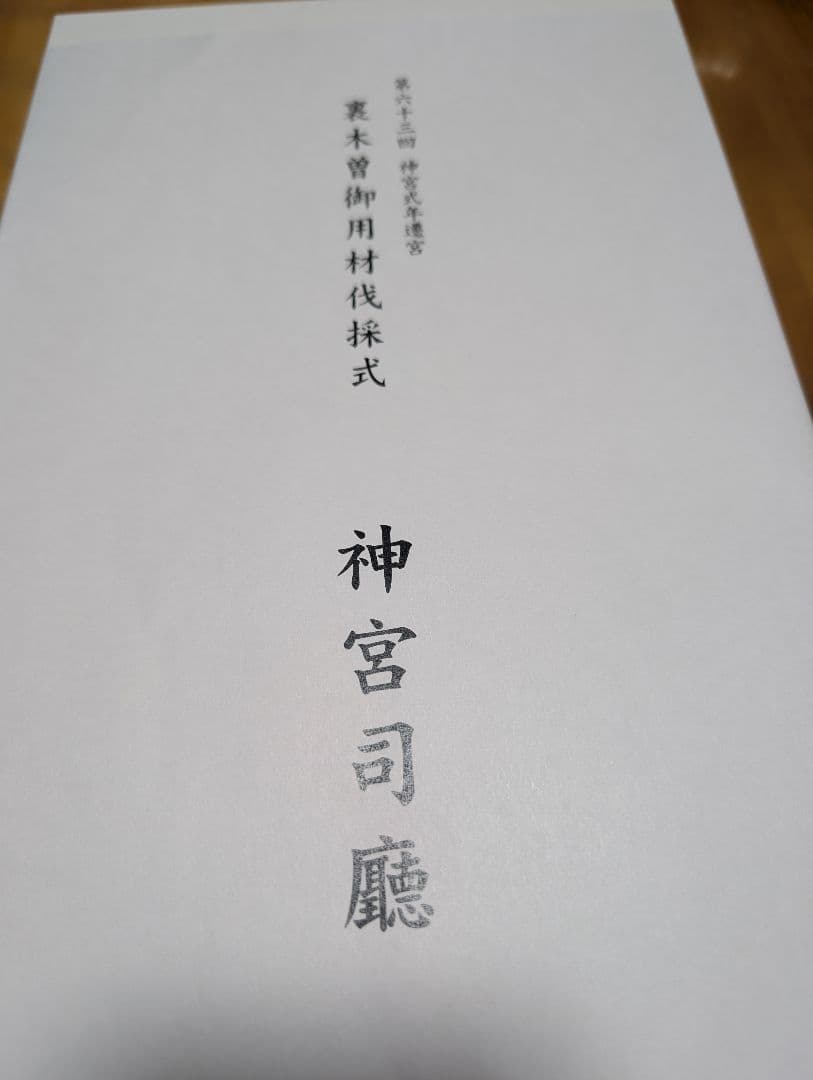 第六十三回 神宮式年遷宮
裏木曽御用材伐採式
神宮司廳